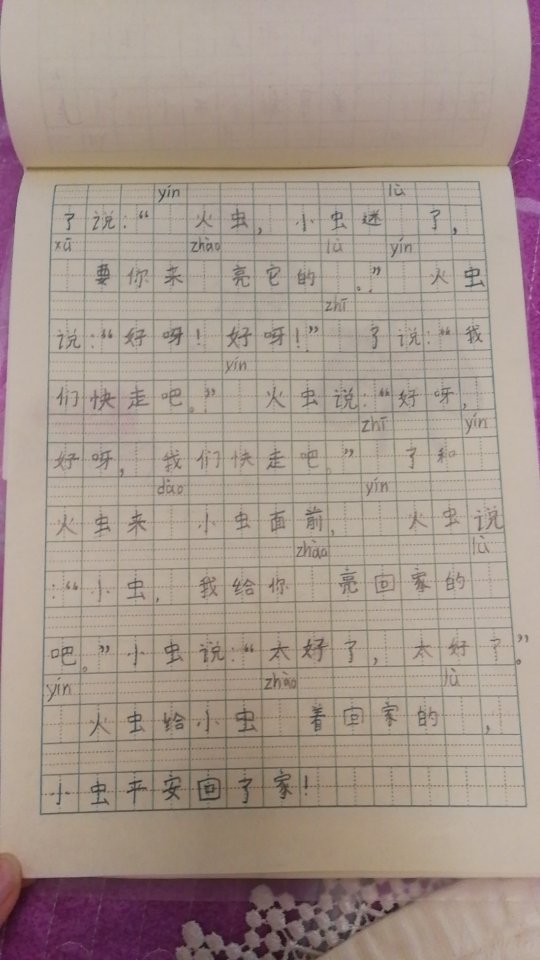 yín lù
了说:“ 火虫,小虫迷 了,
xū zhào lù yín
要你来 亮它的 。” 火虫
zhī
说:“好呀!好呀!” 了说:“我
yín
们快走吧。” 火虫说:“好呀,
zhī yín
好呀,我们快走吧。” 了和
dào yín
火虫来 小虫面前, 火虫说
zhào lù
:“小虫,我给你 亮回家的
吧。”小虫说:“太好了,太好了。”
yín zhào lù
火虫给小虫 着回家的 ,
小虫平安回了家!